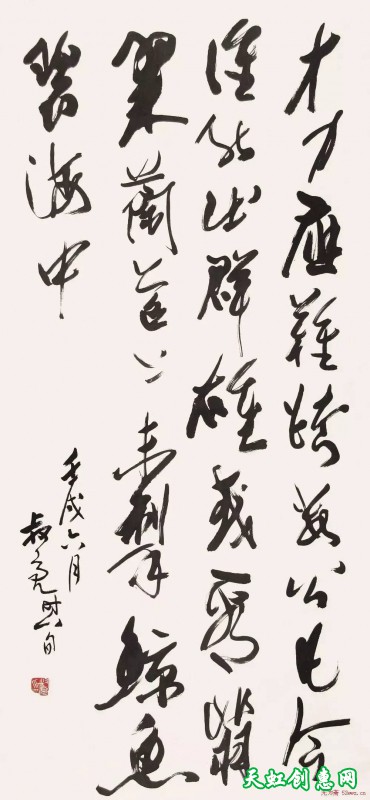 才力應難跨數公凡今
誰能出群雄或看翡
翠蘭苕上未掣鯨魚
碧海中
壬戌六月
叔亮时八旬
天虹创惠网